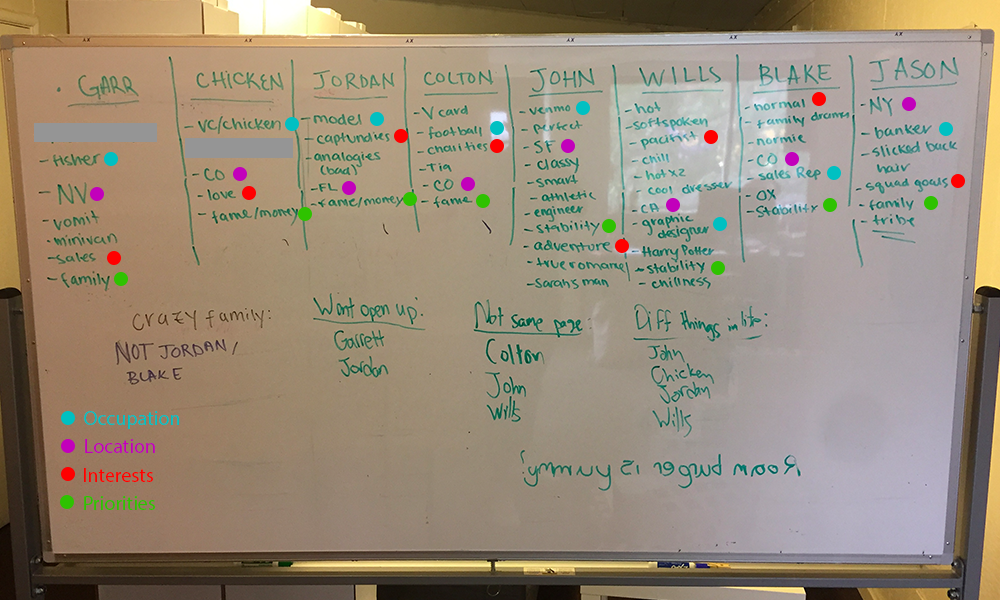 GARR
- fisher
- NV
- vomit
- minivan
- sales
- family
CHICKEN
- VC/chicken
- CO
- love
- fame/money
JORDAN
- model
- captundies
- analogies
(bad)
- FL
- fame/money
COLTON
- V card
- football
- charities
- Tia
- CO
- fame
JOHN
- venmo
- perfect
- SF
- classy
- smart
- athletic
- engineer
- stability
- adventure
- true romance
- Sarahs man
WILLS
- hot
- softspoken
- pacifist
- chill
- hot x2
- cool dresser
- CA
- graphic
designer
- Harry Potter
- stability
- chillness
BLAKE
- normal
- family drama
- normie
- CO
- sales Rep
- OX
- Stability
JASON
- NY
- banker
- slicked back
hair
- squad goals
- family
- tribe
crazy family:
NOT JORDAN/
BLAKE
Wont open up:
Garrett
Jordan
Not same page:
Colton
John
Wills
Diff things in life:
John
Chicken
Jordan
Wills
Room burger is yummy!
Occupation
Location
Interests
Priorities